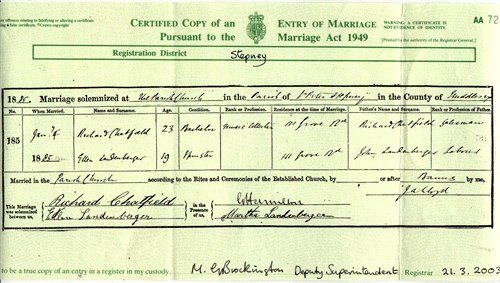 r offences relating to falsifying or altering a certificate
g a false certificate. © Crown copyright
CERTIFIED COPY of an ENTRY OF MARRIAGE
Pursuant to the Marriage Act 1949
WARNING: A CERTIFICATE IS NOT EVIDENCE OF IDENTITY.
[Printed by authority of the Registrar General.]
AA 72
Registration District Stepney
1885. Marriage solemnized at the Parish Church in the Parish of St Peter Stepney in the County of Middlesex
No. When Married. Name and Surname. Age. Condition. Rank or Profession. Residence at the time of Marriage. Father's Name and Surname. Rank or Profession of Father.
185 Richard Chatfield 23 Bachelor 111 Grove Rd Richard Chatfield Salesman
1885 Ellen Landenberger 19 Spinster 111 Grove Rd John Landenberger Labourer
Married in the Parish Church according to the Rites and Ceremonies of the Established Church, by or after Banns by me,
This Marriage was solemnized between us, Richard Chatfield in the Presence of us,
Ellen Landenberger Martha Landenberger
to be a true copy of an entry in a register in my custody. M. G. Brockington Deputy Superintendent Registrar 21.3.2003